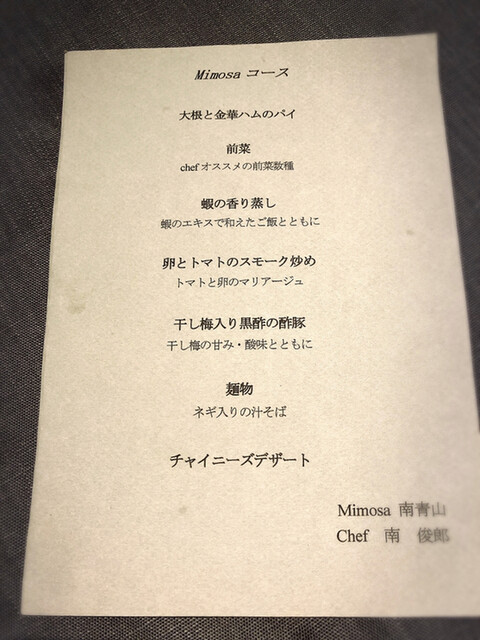 Mimosa コース
大根と金華ハムのパイ
前菜
chef オススメの前菜数種
蝦の香り蒸し
蝦のエキスで和えたご飯とともに
卵とトマトのスモーク炒め
トマトと卵のマリアージュ
干し梅入り黒酢の酢豚
干し梅の甘み・酸味とともに
麺物
ネギ入りの汁そば
チャイニーズデザート
Mimosa 南青山
Chef 南 俊郎